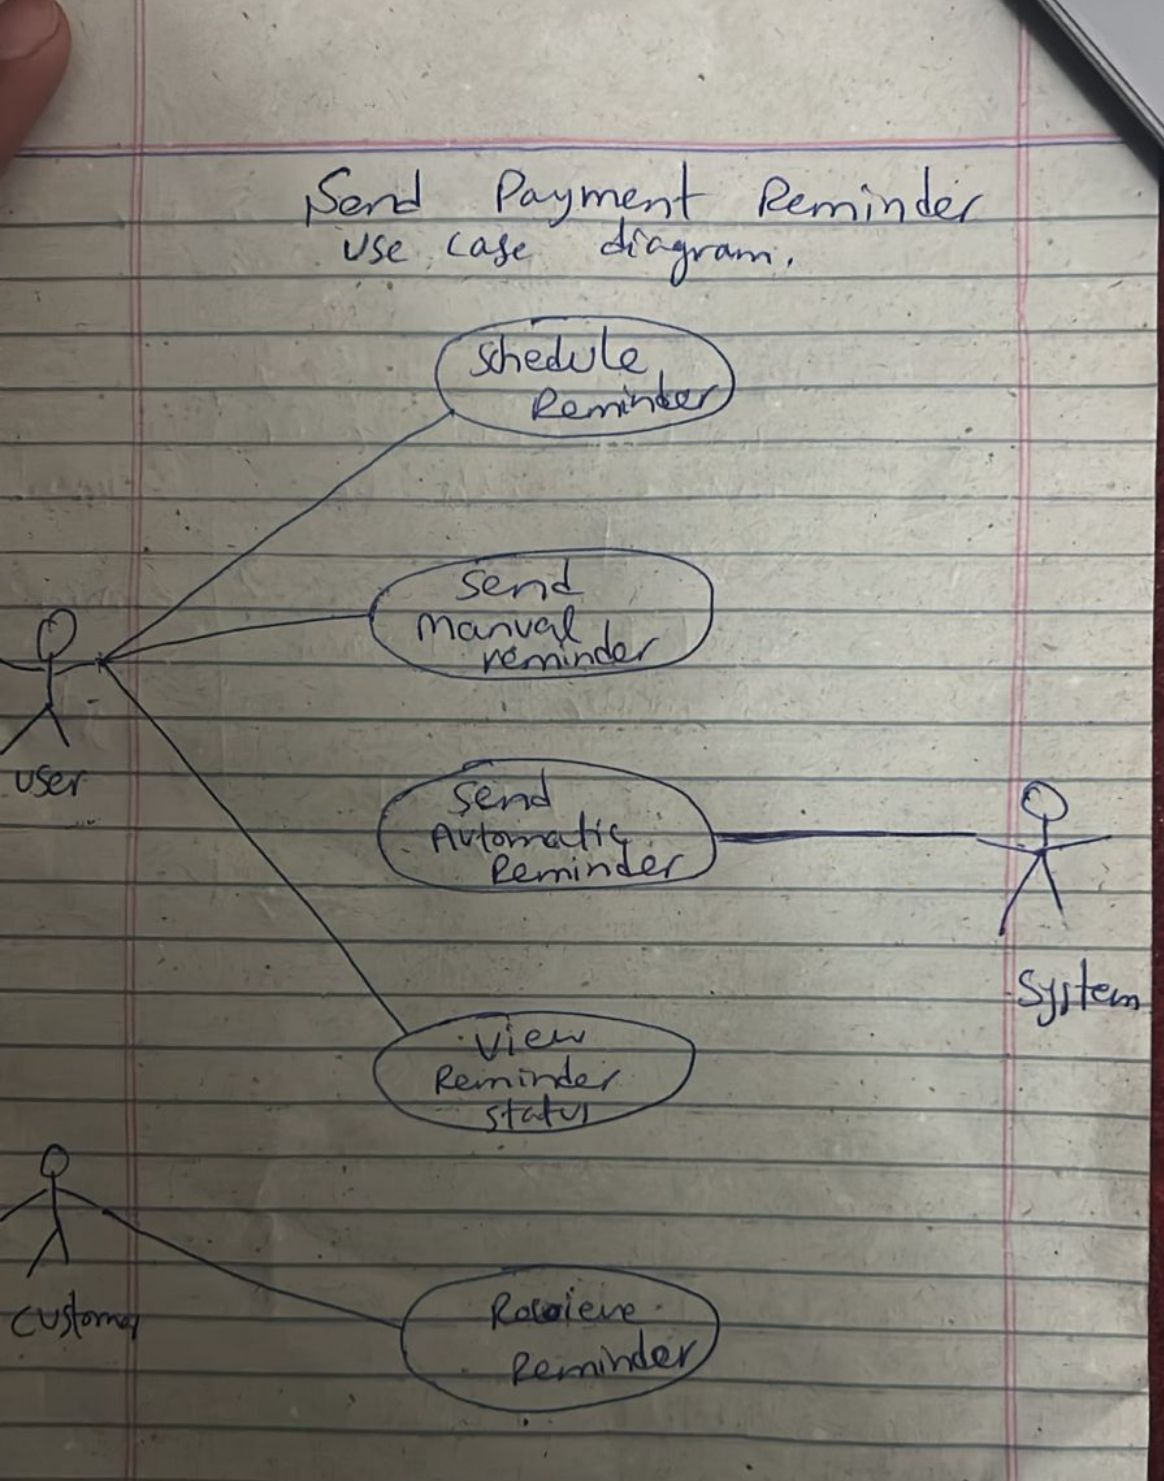 Send Payment Reminder
use case diagram.
Schedule
Reminder
Send
Manual
reminder
user
Send
Automatic
Reminder
System
View
Reminder
status
Customer
Reminder